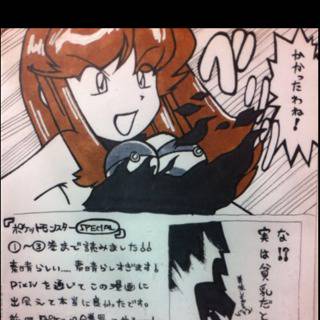 かかったわね!
な!?
実は貧乳だと
『ポケットモンスターSPECIAL』
①~③巻まで読みました!!
素晴らしい…素晴らしすぎます!
pixivを通してこの漫画に
出会えて本当に良かったです。